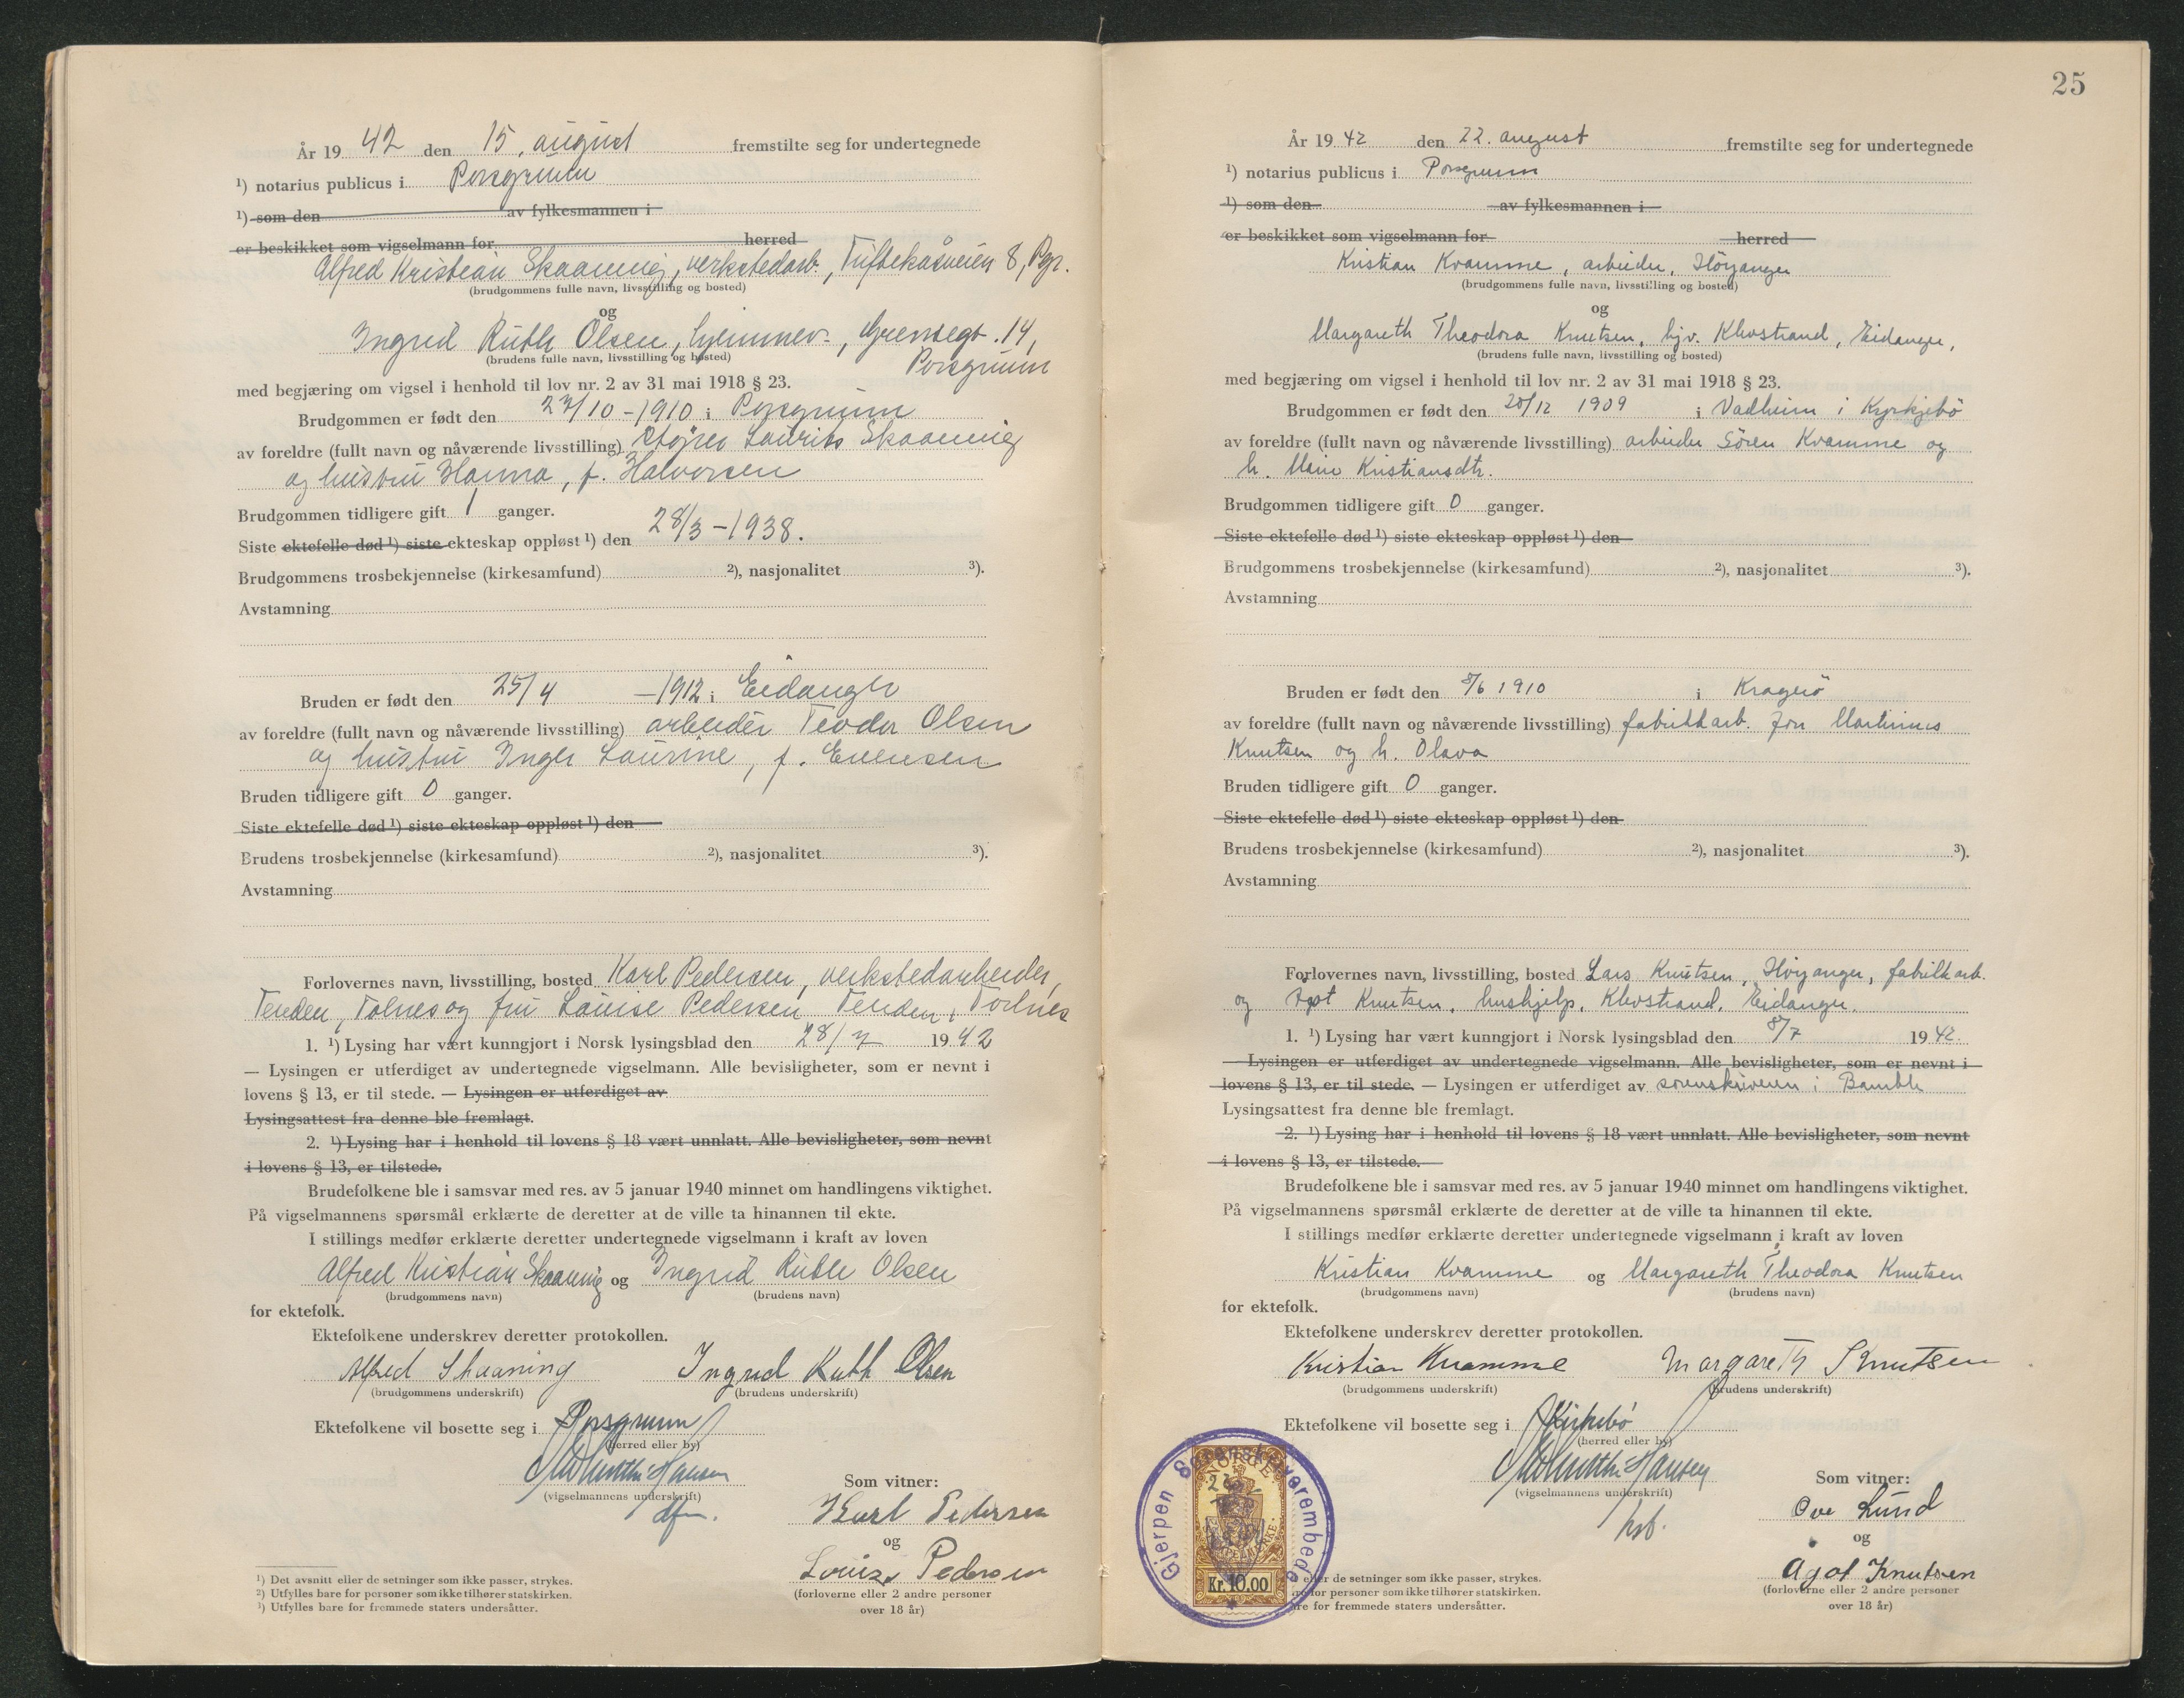 År 19 42 den 15. august fremstilte seg for undertegnede
¹) notarius publicus i Porsgrunn
¹) som den av fylkesmannen i
er beskikket som vigselmann for herred
Alfred Kristian Skaaning, verkstedarb., Tuftekåsveien 8, Pgr.
(brudgommens fulle navn, livsstilling og bosted)
og
Ingrid Ruth Olsen, hjemmev., Grensegt. 14,
(brudens fulle navn, livsstilling og bosted)
Porsgrunn
med begjæring om vigsel i henhold til lov nr. 2 av 31 mai 1918 § 23.
Brudgommen er født den 27/10 - 1910 i Porsgrunn
av foreldre (fullt navn og nåværende livsstilling) Laurits Skaaning
og hustru Hanna, f. Halvorsen
Brudgommen tidligere gift 1 ganger.
Siste ektefelle død ¹) siste ekteskap oppløst ¹) den 28/3 - 1938.
Brudgommens trosbekjennelse (kirkesamfund) ²), nasjonalitet ³).
Avstamning
Bruden er født den 25/4 - 1912 i Eidanger
av foreldre (fullt navn og nåværende livsstilling) arbeider Teodor Olsen
og hustru Inger Laurine, f. Evensen
Bruden tidligere gift 0 ganger.
Siste ektefelle død ¹) siste ekteskap oppløst ¹) den
Brudens trosbekjennelse (kirkesamfund) ²), nasjonalitet ³).
Avstamning
Forlovernes navn, livsstilling, bosted Karl Pedersen, verkstedarbeider,
Tenden, Tolnes og fru Louise Pedersen Tenden, Tolnes
1. ¹) Lysing har vært kunngjort i Norsk lysingsblad den 28/7 19 42
— Lysingen er utferdiget av undertegnede vigselmann. Alle bevisligheter, som er nevnt i
lovens § 13, er til stede. — Lysingen er utferdiget av
Lysingsattest fra denne ble fremlagt.
2. ¹) Lysing har i henhold til lovens § 18 vært unnlatt. Alle bevisligheter, som nevnt
i lovens § 13, er tilstede.
Brudefolkene ble i samsvar med res. av 5 januar 1940 minnet om handlingens viktighet.
På vigselmannens spørsmål erklærte de deretter at de ville ta hinannen til ekte.
I stillings medfør erklærte deretter undertegnede vigselmann i kraft av loven
Alfred Kristian Skaaning og Ingrid Ruth Olsen
(brudgommens navn) (brudens navn)
for ektefolk.
Ektefolkene underskrev deretter protokollen.
Alfred Skaaning Ingrid Ruth Olsen
(brudgommens underskrift) (brudens underskrift)
Ektefolkene vil bosette seg i Porsgrunn
(herred eller by)
Hansen
(vigselmannens underskrift)
Som vitner:
Karl Pedersen
og
Louise Pedersen
(forloverne eller 2 andre personer
over 18 år)
¹) Det avsnitt eller de setninger som ikke passer, strykes.
²) Utfylles bare for personer som ikke tilhører statskirken.
³) Utfylles bare for fremmede staters undersåtter.
25
År 19 42 den 22. august fremstilte seg for undertegnede
¹) notarius publicus i Porsgrunn
¹) som den av fylkesmannen i
er beskikket som vigselmann for herred
Kristian Kvamme, arbeider, Höyanger
(brudgommens fulle navn, livsstilling og bosted)
og
Margareth Theodora Knutsen, hjv. Klevstrand, Eidanger,
(brudens fulle navn, livsstilling og bosted)
med begjæring om vigsel i henhold til lov nr. 2 av 31 mai 1918 § 23.
Brudgommen er født den 20/12 1909 i Vadheim i Kyrkjebö
av foreldre (fullt navn og nåværende livsstilling) arbeider Sören Kvamme og
h. Marie Kristiansdtr.
Brudgommen tidligere gift 0 ganger.
Siste ektefelle død ¹) siste ekteskap oppløst ¹) den
Brudgommens trosbekjennelse (kirkesamfund) ²), nasjonalitet ³).
Avstamning
Bruden er født den 8/6 1910 i Kragerö
av foreldre (fullt navn og nåværende livsstilling) fabrikkarb. Jon Martinius
Knutsen og h. Olava
Bruden tidligere gift 0 ganger.
Siste ektefelle død ¹) siste ekteskap oppløst ¹) den
Brudens trosbekjennelse (kirkesamfund) ²), nasjonalitet ³).
Avstamning
Forlovernes navn, livsstilling, bosted Lars Knutsen, Höyanger, fabrikkarb.
og Ågot Knutsen, hushjelp, Klevstrand, Eidanger.
1. ¹) Lysing har vært kunngjort i Norsk lysingsblad den 8/7 19 42.
— Lysingen er utferdiget av undertegnede vigselmann. Alle bevisligheter, som er nevnt i
lovens § 13, er til stede. — Lysingen er utferdiget av sorenskriveren i Bamble
Lysingsattest fra denne ble fremlagt.
2. ¹) Lysing har i henhold til lovens § 18 vært unnlatt. Alle bevisligheter, som nevnt
i lovens § 13, er tilstede.
Brudefolkene ble i samsvar med res. av 5 januar 1940 minnet om handlingens viktighet.
På vigselmannens spørsmål erklærte de deretter at de ville ta hinannen til ekte.
I stillings medfør erklærte deretter undertegnede vigselmann i kraft av loven
Kristian Kvamme og Margareth Theodora Knutsen
(brudgommens navn) (brudens navn)
for ektefolk.
Ektefolkene underskrev deretter protokollen.
Kristian Kvamme Margareth Knutsen
(brudgommens underskrift) (brudens underskrift)
Ektefolkene vil bosette seg i Kirkebö
(herred eller by)
Hansen
(vigselmannens underskrift)
kst.
Som vitner:
Ove Lund
og
Ågot Knutsen
(forloverne eller 2 andre personer
over 18 år)
Gjerpen Sorenskriverembede
NORGE
STEMPELMERKE
Kr. 10.00
eller de setninger som ikke passer, strykes.
for personer som ikke tilhører statskirken.
re for fremmede staters undersåtter.